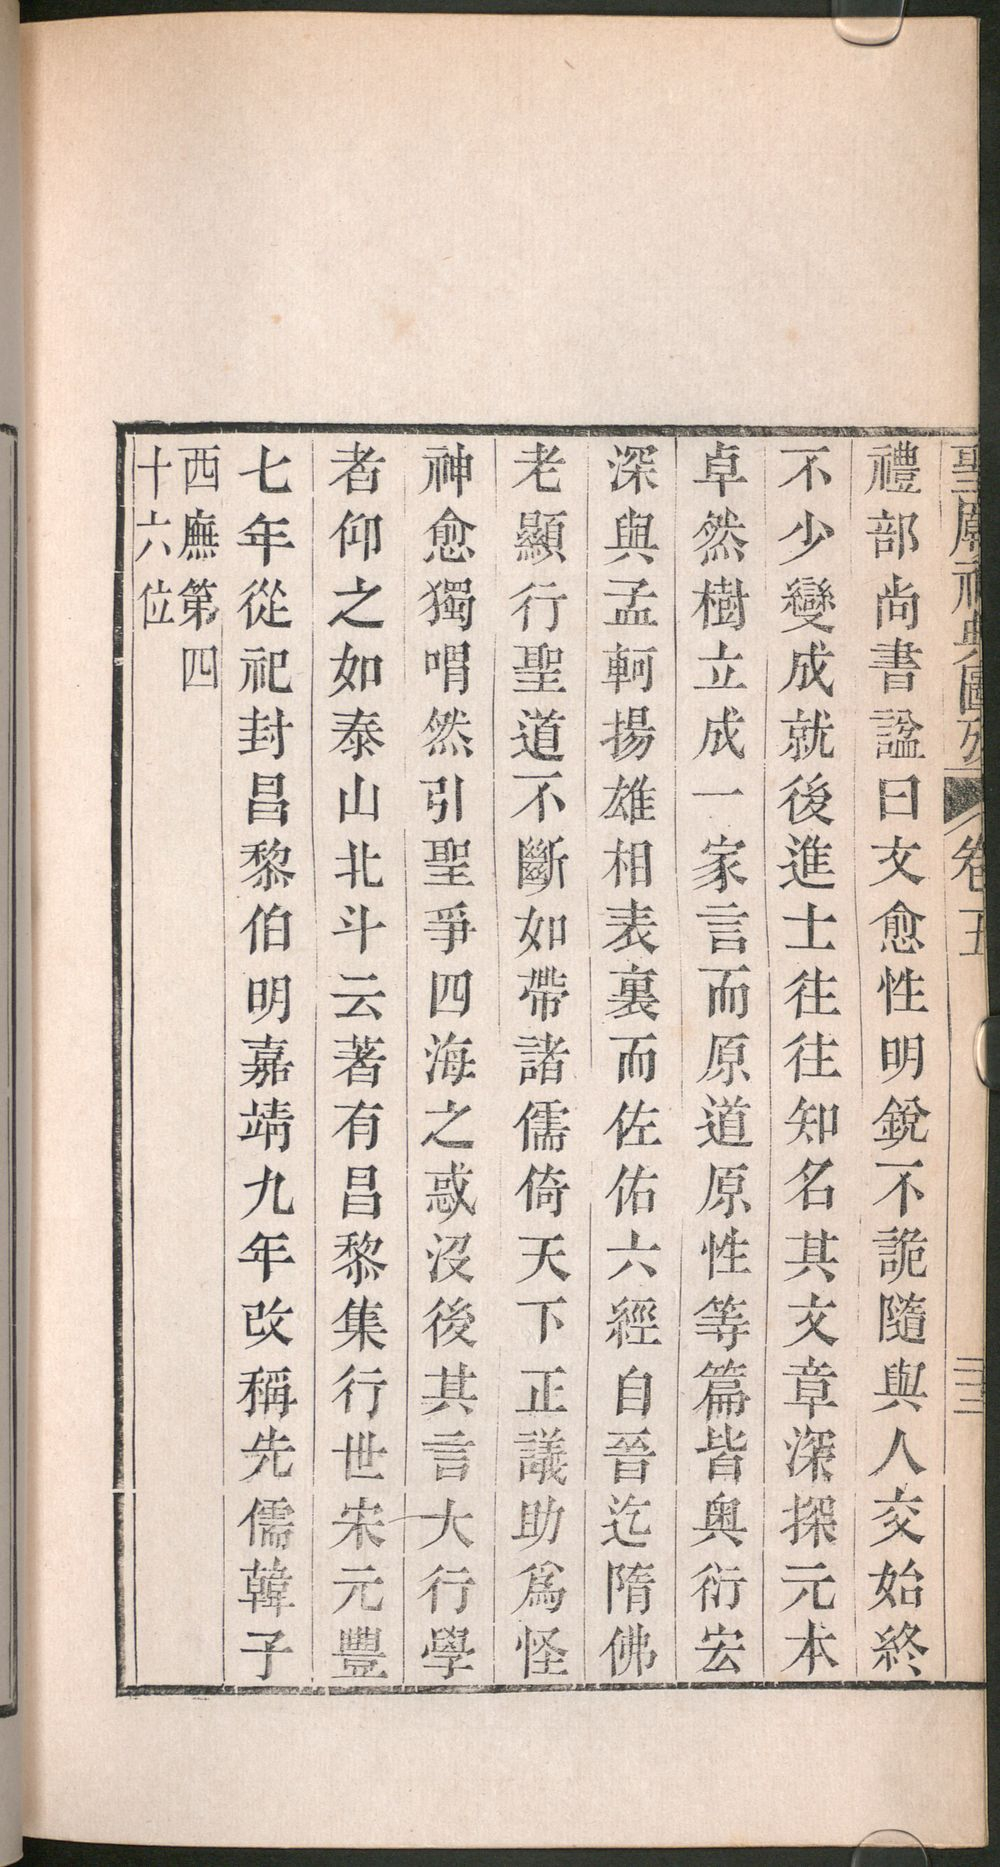 聖廟祀典圖攷 卷五
禮部尚書諡曰文愈性明銳不詭隨與人交始終
不少變成就後進士往往知名其文章深探元本
卓然樹立成一家言而原道原性等篇皆奧衍宏
深與孟軻揚雄相表裏而佐佑六經自晉迄隋佛
老顯行聖道不斷如帶諸儒倚天下正議助爲怪
神愈獨喟然引聖爭四海之惑沒後其言大行學
者仰之如泰山北斗云著有昌黎集行世宋元豐
七年從祀封昌黎伯明嘉靖九年改稱先儒韓子
西廡第四
十六位